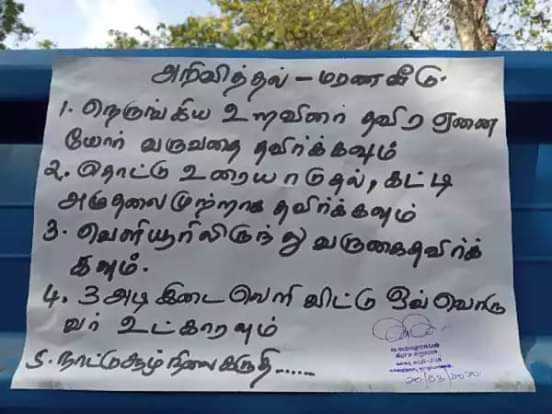 அறிவித்தல் - மரணவீடு.
1. நெருங்கிய உறவினர் தவிர ஏனை
யோர் வருவதை தவிர்க்கவும்
2. தொட்டு உரையாடுதல், கட்டி
அழுதலை முற்றாக தவிர்க்கவும்
3. வெளியூரிலிருந்து வருகைதவிர்க்
கவும்.
4. 3 அடி இடைவெளி விட்டு ஒவ்வொரு
வர் உட்காரவும்
5. நாட்டுசூழ்நிலை கருதி......
20/03/2020